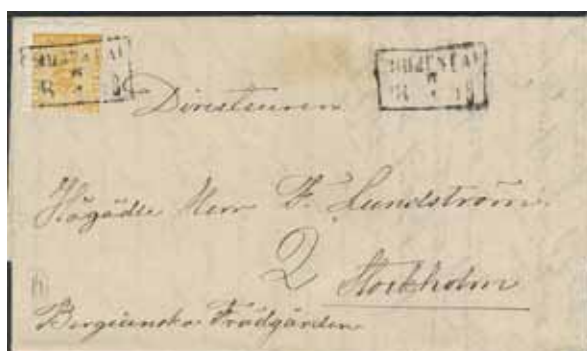 Directeuren
Högädle Herr F. Lundström
2 Stockholm
Bergianska Trädgården